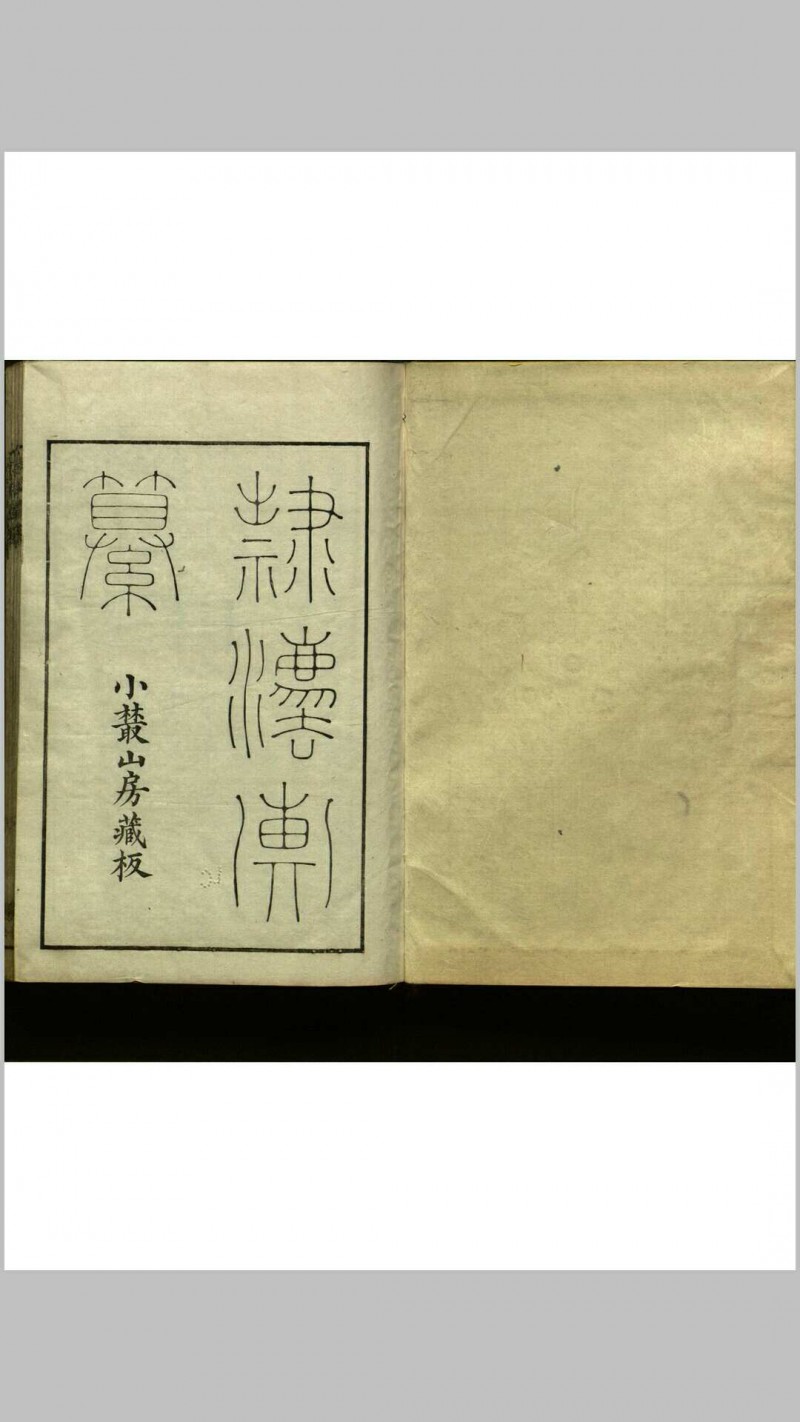 隸灋彙
纂
小樷山房藏板